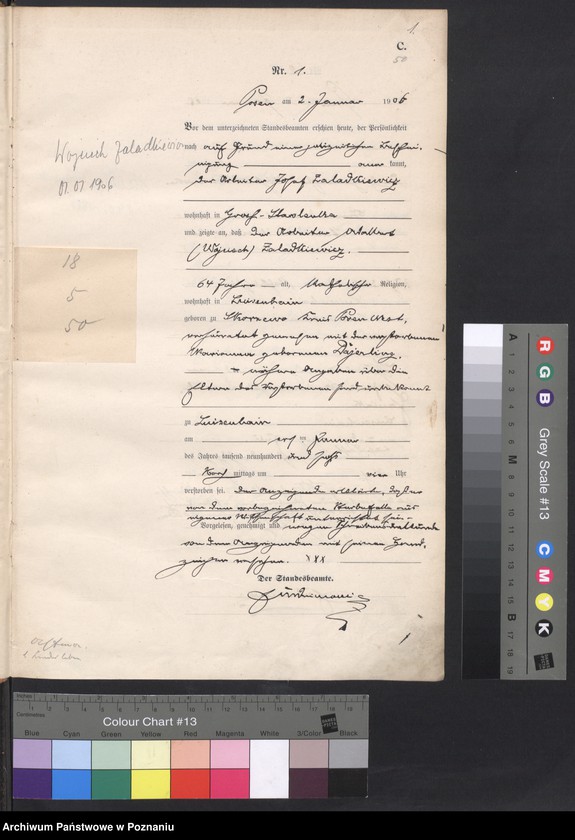 1.
C.
50
Nr. 1.
Posen am 2. Januar 1906
Vor dem unterzeichneten Standesbeamten erschien heute, der Persönlichkeit
nach auf Grund einer polizeilichen Beschei-
nigung kannt,
der Arbeiter Josef Zaladkiewicz
Wojciech Zaladkiewicz
01.01.1906
wohnhaft in Groß-Starolenka
und zeigte an, daß der Arbeiter Adalbert
(Wojciech) Zaladkiewicz.
18
5
50
64 Jahre alt, katholischer Religion,
wohnhaft in Luisenhain
geboren zu Skorzewo Kreis Posen West,
verheiratet gewesen mit der verstorbenen
Marianna geborenen
nähere Angaben über die
Eltern des Verstorbenen sind unbekannt
zu Luisenhain
am ersten Januar
des Jahres tausend neunhundert und sechs
Vor mittags um vier Uhr
verstorben sei. Der Anzeigende erklärte, daß er
von dem vorbezeichneten Sterbefalle aus
eigener Wissenschaft unterrichtet sei.
Vorgelesen, genehmigt und wegen Schreibensunkunde
von dem Anzeigenden mit seinen Hand-
zeichen versehen. XXX
Der Standesbeamte.
Inches
Centimetres
Colour Chart #13
Blue Cyan Green Yellow Red Magenta White 3/Color Black
Grey Scale #13
A 1 2 3 4 5 6 M 8 9 10 11 12 13 14 15 B 17 18 19
R G B
C M Y K
Archiwum Państwowe w Poznaniu